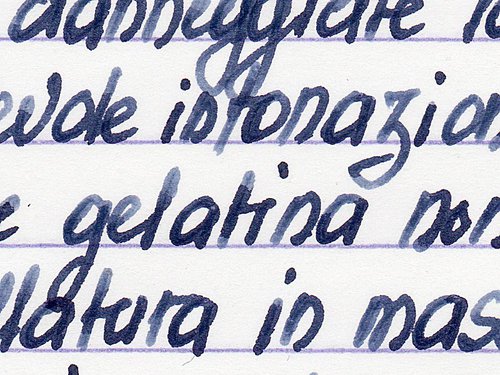 danneggiare la
evole intonazion
e gelatina non
llatura in mas